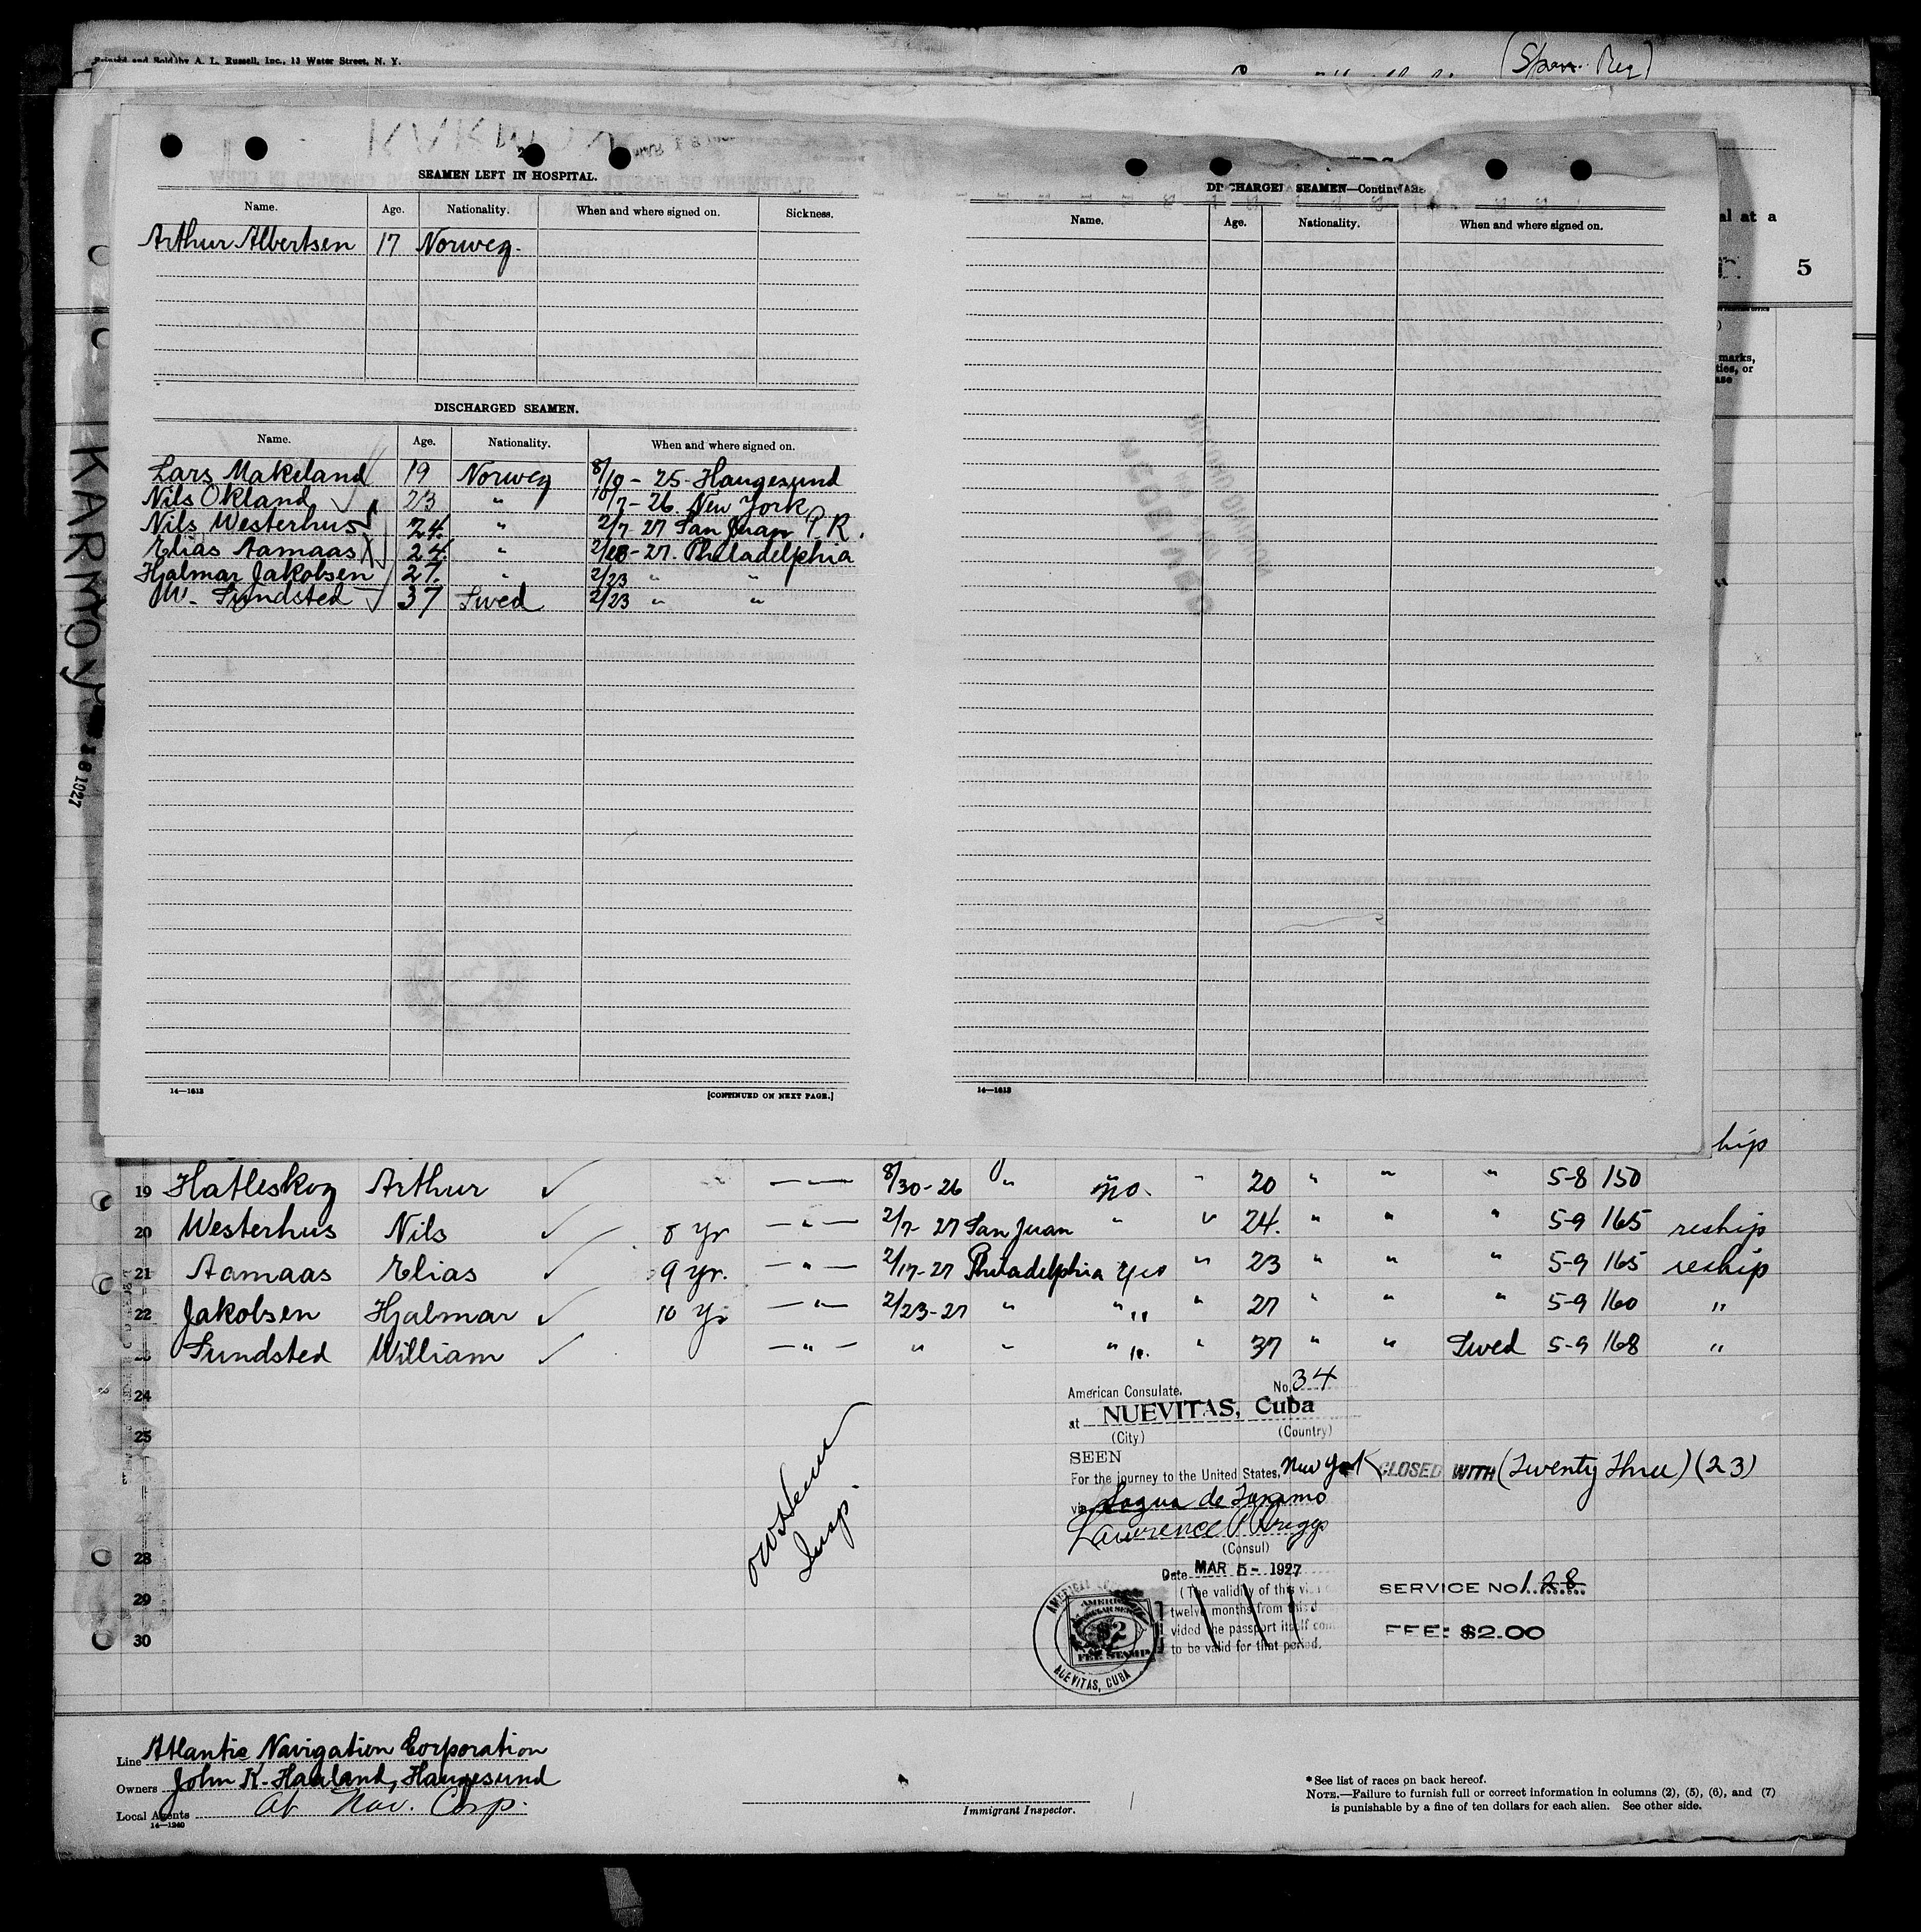 Printed and Sold by A. L. Russell, Inc., 13 Water Street, N. Y.
(Span. Reg)
SEAMEN LEFT IN HOSPITAL.
Name. Age. Nationality. When and where signed on. Sickness.
Arthur Albertsen 17 Norweg.
DISCHARGED SEAMEN.
Name. Age. Nationality. When and where signed on.
Lars Makeland 19 Norweg 8/9 - 25 - Haugesund
Nils Okland 23 " 10/7 - 26. New York
Nils Westerhus 24. " 2/7 - 27 San Juan P.R.
Elias Aamaas 24. " 2/23 - 27. Philadelphia
Hjalmar Jakobsen 27. " 2/23 " "
W. Sundsted 37 Swed 2/23 " "
14—1613
[CONTINUED ON NEXT PAGE.]
DISCHARGED SEAMEN—Continued
Name. Age. Nationality. When and where signed on.
14—1613
al at a
5
marks,
ties, or
ase
KARMOY
8 1927
hip
19 Hatleskog Arthur ✓ — " — 8/30 - 26 " no. " 20 " " " 5-8 150
20 Westerhus Nils ✓ 8 Yr — " — 2/7 - 27 San Juan " " 24. " " " 5-9 165 reship
21 Aamaas Elias ✓ 9 Yr. — " — 2/17-27 Philadelphia yes " 23 " " " 5-9 165 reship
22 Jakobsen Hjalmar ✓ 10 Yr — " — 2/23-27 " " " 27 " " " 5-9 160 "
23 Sundsted William ✓ — " — " " " " 37 " " Swed 5-9 168 "
24
25
28
29
30
Insp.
American Consulate. No. 34
at NUEVITAS, Cuba
(City) (Country)
SEEN
For the journey to the United States, New York CLOSED WITH (Twenty Three) (23)
via Sagua de Tanamo
Lawrence P. Briggs
(Consul)
Date MAR 5 - 1927
(The validity of this
twelve months from
vided the passport itself
to be valid for that period.
AMERICAN
$2
FEE STAMP
NUEVITAS, CUBA
SERVICE NO. 128
FEE: $2.00
Line Atlantic Navigation Corporation
Owners John K. Haaland, Haugesund
Local Agents At Nav. Corp.
14—1240
Immigrant Inspector.
* See list of races on back hereof.
NOTE.—Failure to furnish full or correct information in columns (2), (5), (6), and (7)
is punishable by a fine of ten dollars for each alien. See other side.